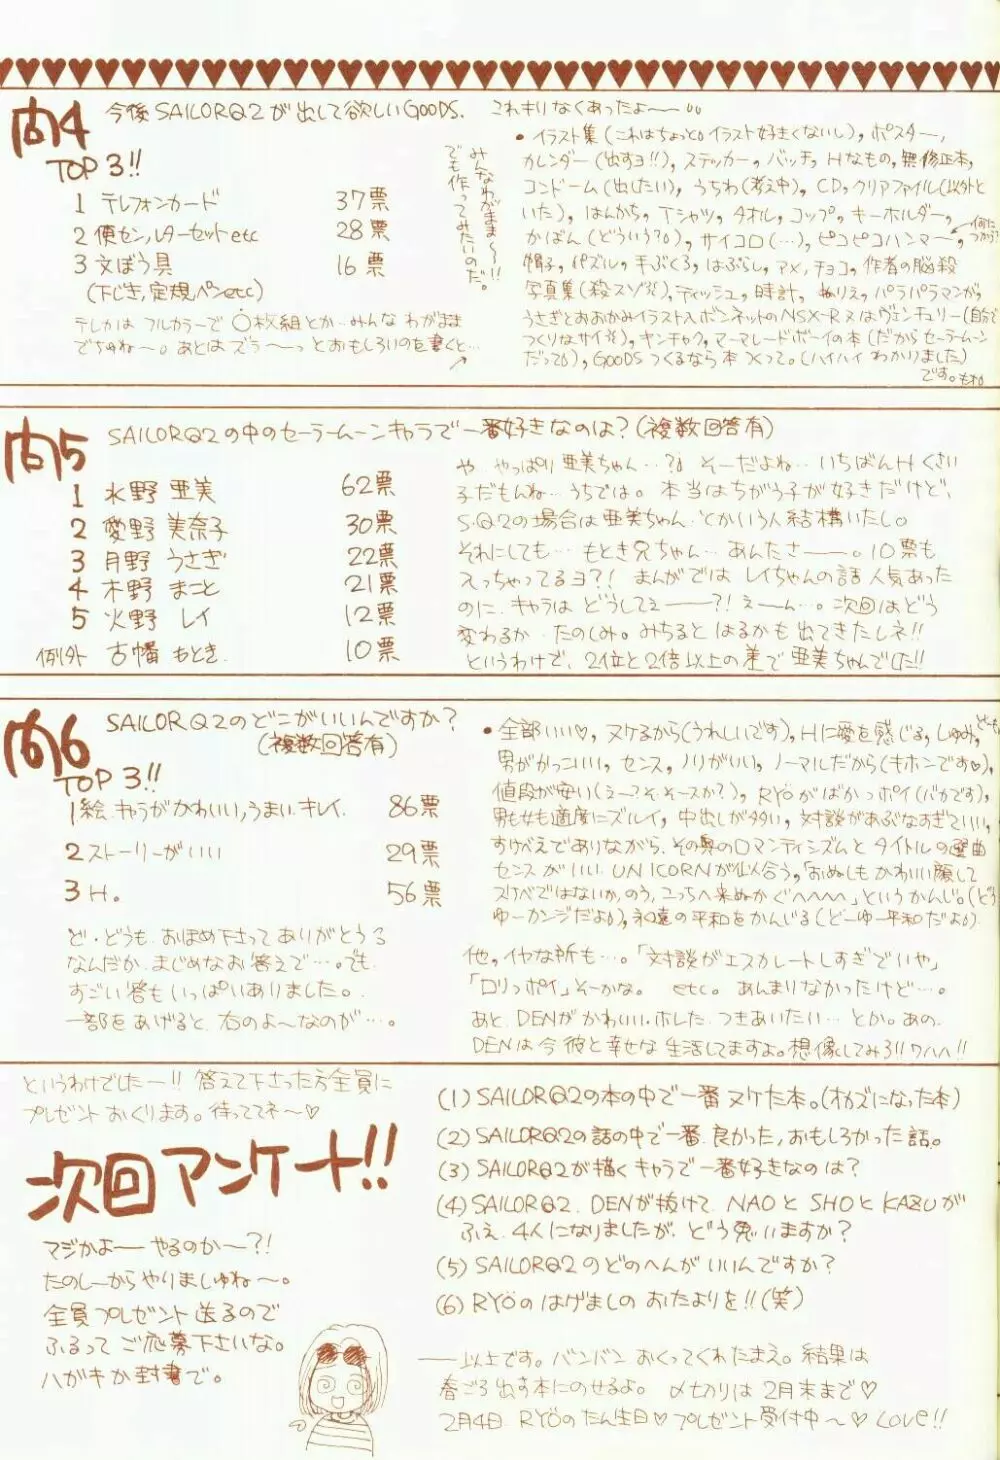 問4 今後SAILORQ2が出して欲しいGOODS.
TOP 3!!
1 テレフォンカード 37票
2 便セン,レターセットetc 28票
3 文ぼう具 16票
(下じき,定規,ペンetc)
みんなわがまま〜!!
でも作ってみたいのだ。
テレカは フルカラーで ○枚組とか…みんな わがまま
でちゅね〜。あとは ズラ〜っと おもしろいのを書くと…
これキリなくあったよ〜〜。
• イラスト集(これはちょっと。イラスト好きくないし), ポスター,
カレンダー(出すヨ!!), ステッカー, バッチ, Hなもの, 無修正本,
コンドーム(出したい), うちわ(考え中), CD, クリアファイル(以外と
いた), はんかち, Tシャツ, タオル, コップ, キーホルダー,
かばん(どういう?), サイコロ(…), ピコピコハンマー,
帽子, パズル, 手ぶくろ, はぶらし, アメ, チョコ, 作者の脳殺
写真集(殺スゾ), ティッシュ, 時計, ぬりえ, パラパラマンガ,
うさぎとおおかみイラスト入ボンネットのNSX-R又はヴェンチュリー(自分で
つくりなサイ), キンチャク, マーマレードボーイの本(だからセーラームーン
だって), GOODSつくるなら本つくって。(ハイハイ わかりました)
です。
問5 SAILORQ2の中のセーラームーンキャラで一番好きなのは?(複数回答有)
1 水野 亜美 62票
2 愛野 美奈子 30票
3 月野 うさぎ 22票
4 木野 まこと 21票
5 火野 レイ 12票
例外 古幡 もとき. 10票
や やっぱり 亜美ちゃん…? そーだよね… いちばんHくさい
子だもんね…うちでは。本当はちがう子が好きだけど、
S.Q2の場合は亜美ちゃん、とかいう人結構いたし。
それにしても… もとき兄ちゃん… あんたさー。10票も
入っちゃってるヨ?! まんがでは レイちゃんの話 人気あった
のに、キャラは どうしてえー?! えーん…。次回はどう
変わるか たのしみ。みちると はるかも出てきたしネ!!
というわけで、2位と2倍以上の差で 亜美ちゃんでした!!
問6 SAILORQ2のどこがいいんですか?
(複数回答有)
TOP 3!!
1 絵.キャラがかわいい,うまい,キレイ. 86票
2 ストーリーがいい 29票
3 H。 56票
ど・どうも、おほめ下さって ありがとうる
なんだか、まじめなお答えで…。でも
すごい答も いっぱいありました。
一部をあげると、右のよ〜なのが…。
• 全部いい♡, ヌケるから(うれしいです), Hに愛を感じる, しゅみ,
男がかっこいい, センス, ノリがいい, ノーマルだから(キホンです♡),
値段が安い(えー?そ、そースか?), RYÖがばかっポイ(バカです),
男も女も適度にズルイ, 中出しが多い, 対談があぶなすぎていい,
すけべえでありながら、その奥のロマンティシズムと タイトルの選曲
センスがいい UNICORNが似合う, 「おぬしも かわいい顔して
スケベではないか, のう, こっちへ来ぬか ぐへへへへ」というかんじ。(どう
ゆーカンジだよ), 永遠の平和をかんじる(どーゆー平和だよ)
他, イヤな所も…。「対談がエスカレートしすぎでいや」
「ロリっポイ」そーかな。 etc. あんまりなかったけど…。
あと、DENが かわいい. ホレた. つきあいたい… とか。あの、
DENは今 彼と幸せな 生活してますよ。想像してみろ!! ワハハ!!
というわけでしたー!! 答えて下さった方全員に
プレゼント おくります。待っててネ〜♡
次回アンケート!!
マジかよー やるのか〜?!
たのしーからやりましゅね〜。
全員プレゼント送るので
ふるって ご応募下さいな。
ハガキか封書で。
(1) SAILORQ2の本の中で一番ヌケた本。(オカズになった本)
(2) SAILORQ2の話の中で一番、良かった,おもしろかった話。
(3) SAILORQ2が描くキャラで一番好きなのは?
(4) SAILORQ2. DENが抜けて NAOと SHOと KAZUが
ふえ、4人になりましたが、どう思いますか?
(5) SAILORQ2のどのへんが いいんですか?
(6) RYÖの はげましの おたよりを!!(笑)
ー以上です。バンバン おくってくれたまえ。結果は
春ごろ出す本にのせるよ。 〆切りは2月末まで♡
2月4日 RYÖのたん生日♡ プレゼント受付中〜♡ Love!!